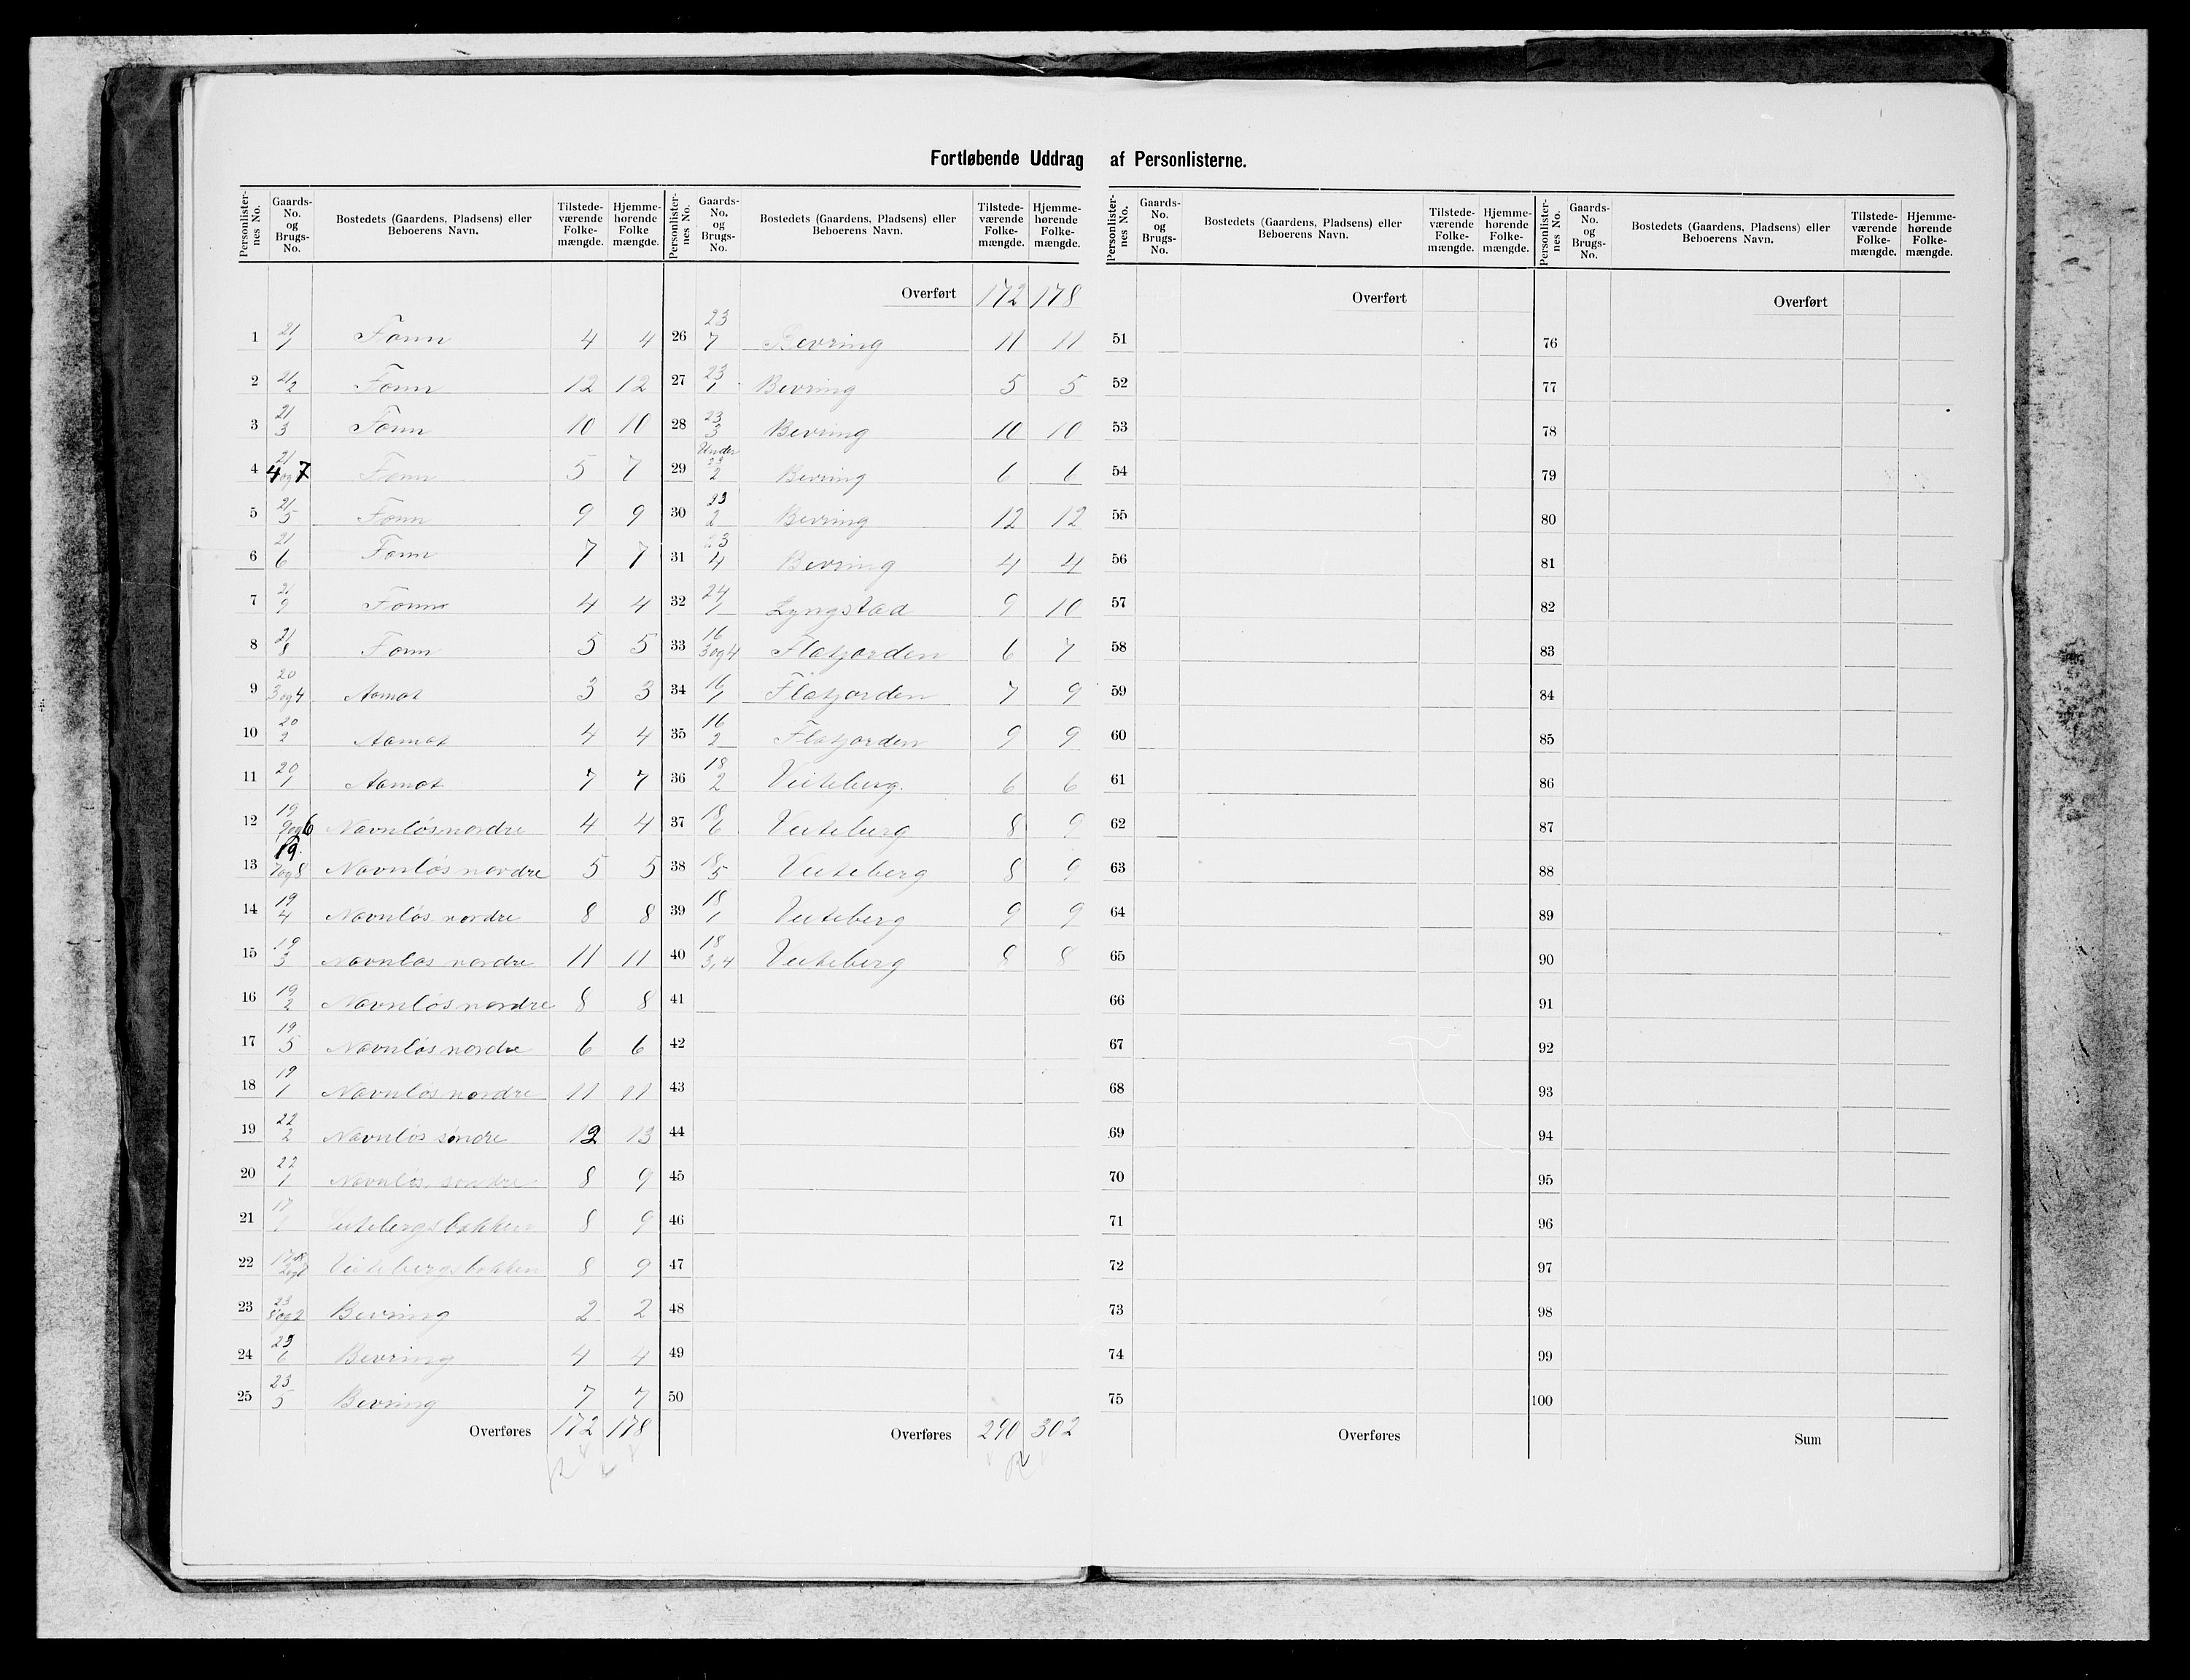 Fortløbende Uddrag af Personlisterne.
Personlister-nes No. Gaards-No. og Brugs-No. Bostedets (Gaardens, Pladsens) eller Beboerens Navn. Tilstede-værende Folke-mængde. Hjemme-hørende Folke mængde.
1 21/1 Fonn 4 4
2 21/2 Fonn 12 12
3 21/3 Fonn 10 10
4 21/4 og 7 Fonn 5 7
5 21/5 Fonn 9 9
6 21/6 Fonn 7 7
7 21/9 Fonn 4 4
8 21/8 Fonn 5 5
9 20/3 og 4 Aamot 3 3
10 20/2 Aamot 4 4
11 20/1 Aamot 7 7
12 19/9 og 6 Navnløs nordre 4 4
13 19/7 og 8 Navnløs nordre 5 5
14 19/4 Navnløs nordre 8 8
15 19/3 Navnløs nordre 11 11
16 19/2 Navnløs nordre 8 8
17 19/5 Navnløs nordre 6 6
18 19/1 Navnløs nordre 11 11
19 22/2 Navnløs søndre 12 13
20 22/1 Navnløs søndre 8 9
21 17/1 8 9
22 Viitebergsbakken 8 9
23 23 Bevring 2 2
24 23/6 Bevring 4 4
25 23/5 Bevring 7 7
Overføres 172 178
Personlister-nes No. Gaards-No. og Brugs-No. Bostedets (Gaardens, Pladsens) eller Beboerens Navn. Tilstede-værende Folke-mængde. Hjemme-hørende Folke-mængde.
Overført 172 178
26 23/7 Bevring 11 11
27 23/1 Bevring 5 5
28 23/3 Bevring 10 10
29 Under 23/2 Bevring 6 6
30 23/2 Bevring 12 12
31 23/4 Bevring 4 4
32 24/1 Lyngstad 9 10
33 16/3 og 4 Flofjorden 6 7
34 16/1 Flofjorden 7 9
35 16/2 Flofjorden 9 9
36 18/2 Viiteberg. 6 6
37 18/6 Viiteberg 8 9
38 18/5 Viiteberg 8 9
39 18/1 Viiteberg 9 9
40 18/3,4 Viiteberg 8 8
41
42
43
44
45
46
47
48
49
50
Overføres 290 302
Personlister-nes No. Gaards-No. og Brugs-No. Bostedets (Gaardens, Pladsens) eller Beboerens Navn. Tilstede-værende Folke-mængde. Hjemme-hørende Folke-mængde.
Overført
51
52
53
54
55
56
57
58
59
60
61
62
63
64
65
66
67
68
69
70
71
72
73
74
75
Overføres
Personlister-nes No. Gaards-No. og Brugs-No. Bostedets (Gaardens, Pladsens) eller Beboerens Navn. Tilstede-værende Folke-mængde. Hjemme-hørende Folke-mængde.
Overført
76
77
78
79
80
81
82
83
84
85
86
87
88
89
90
91
92
93
94
95
96
97
98
99
100
Sum